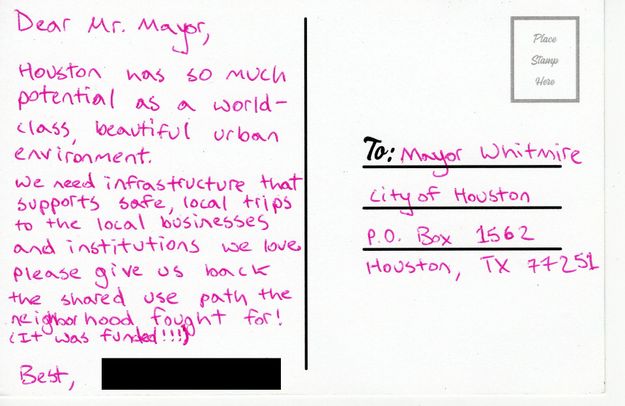 Dear Mr. Mayor,
Houston has so much
potential as a world-
class, beautiful urban
environment.
We need infrastructure that
supports safe, local trips
to the local businesses
and institutions we love
please give us back
the shared use path the
neighborhood fought for!
(It was funded!!!)
Best,
Place
Stamp
Here
To: Mayor Whitmire
City of Houston
P.O. Box 1562
Houston, TX 77251